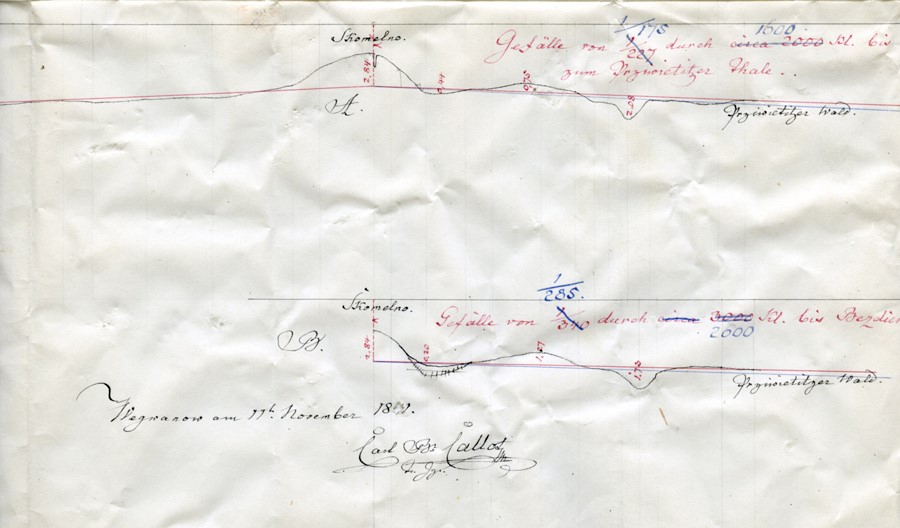 Skomelno.
1/175 1600
Gefälle von 1/227 durch circa 2000 Kl. bis
zum Przwietitzer Thale..
2,84
0,44
2,28
A.
Przwietitzer Wald.
1/285.
Skomelno.
Gefälle von 1/340 durch circa 3000 Kl. bis
2600
B.
2,84
0,20
1,27
1,73
Przwietitzer Wald.
Wegwanow am 17t. November
Carl Bn Callot